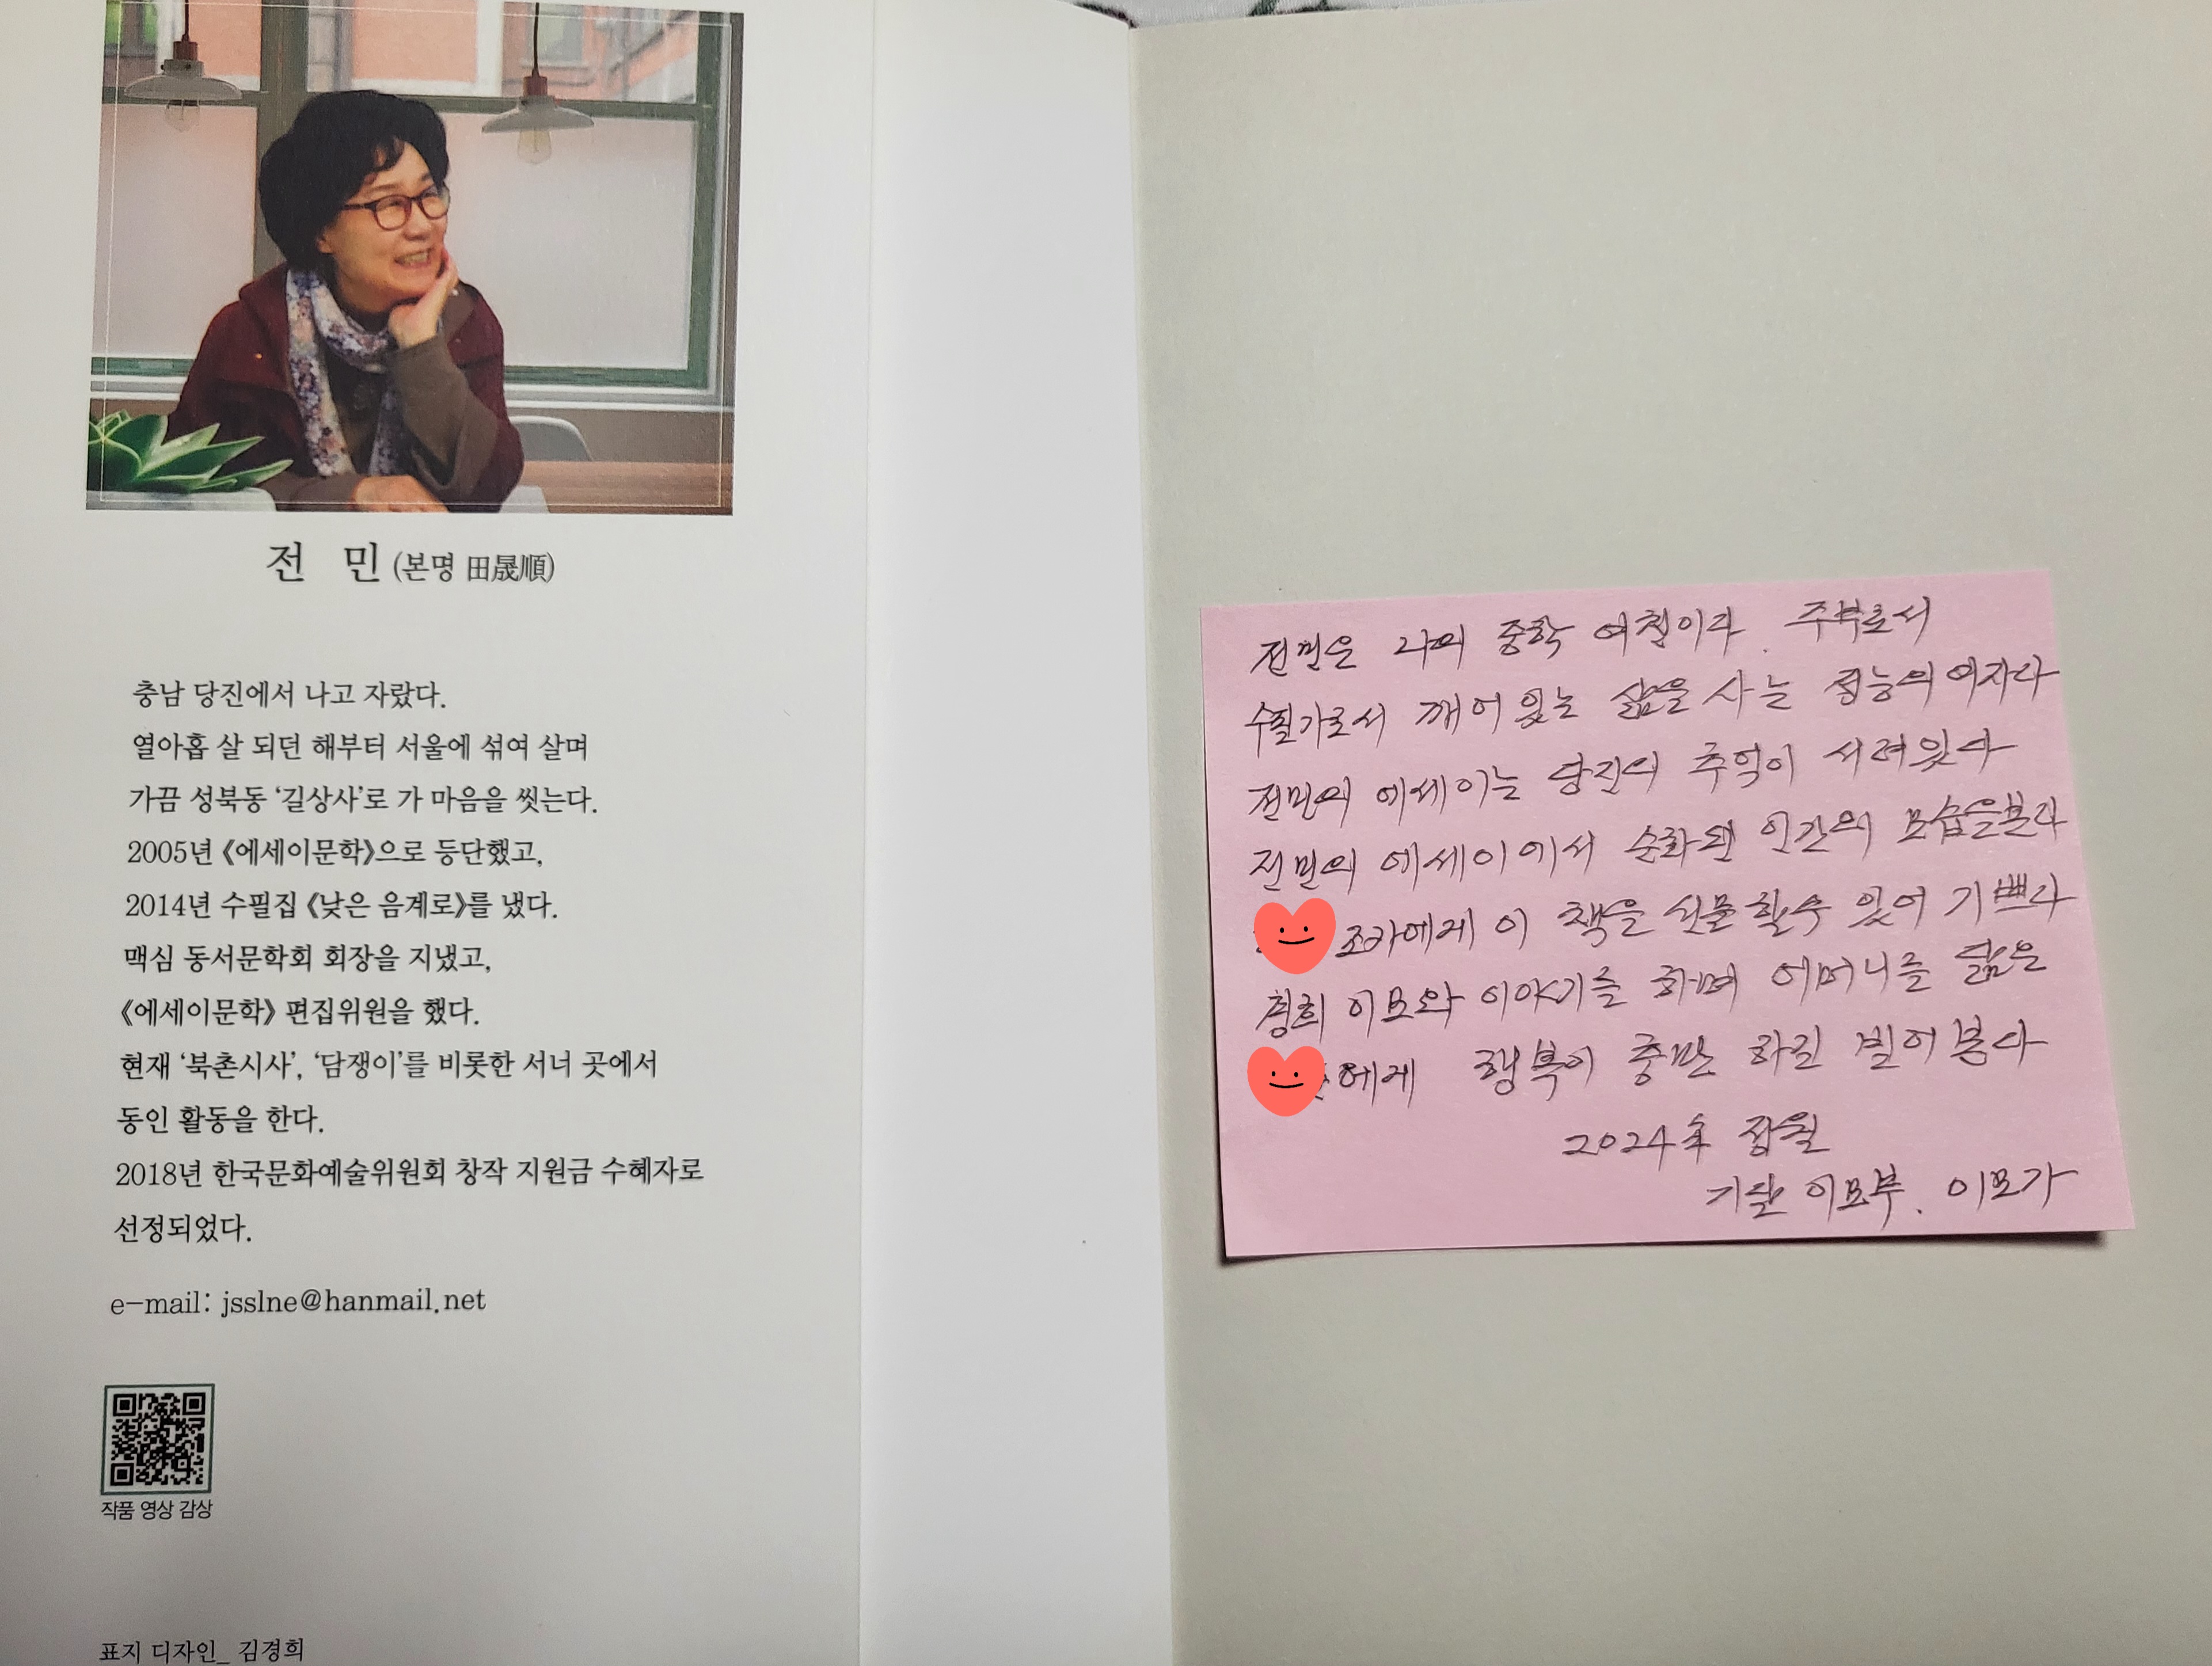 전 민 (본명 田晟順)
충남 당진에서 나고 자랐다.
열아홉 살 되던 해부터 서울에 섞여 살며
가끔 성북동 ‘길상사’로 가 마음을 씻는다.
2005년 《에세이문학》으로 등단했고,
2014년 수필집 《낮은 음계로》를 냈다.
맥심 동서문학회 회장을 지냈고,
《에세이문학》 편집위원을 했다.
현재 ‘북촌시사’, ‘담쟁이’를 비롯한 서너 곳에서
동인 활동을 한다.
2018년 한국문화예술위원회 창작 지원금 수혜자로
선정되었다.
e-mail: jsslne@hanmail.net
작품 영상 감상
표지 디자인_ 김경희
전민은 나의 중학 여친이라. 주부로서
수필가로서 깨어 있는 삶을 사는 의 여자다
전민의 에세이는 당진의 추억이 서려있다
전민의 에세이에서 순화된 인간의 모습을본다
조카에게 이 책을 선물할수 있어 기쁘다
이모와 이야기를 하며 어머니를 닮은
에게 행복이 충만 하길 빌어본다
2024
이모부. 이모가